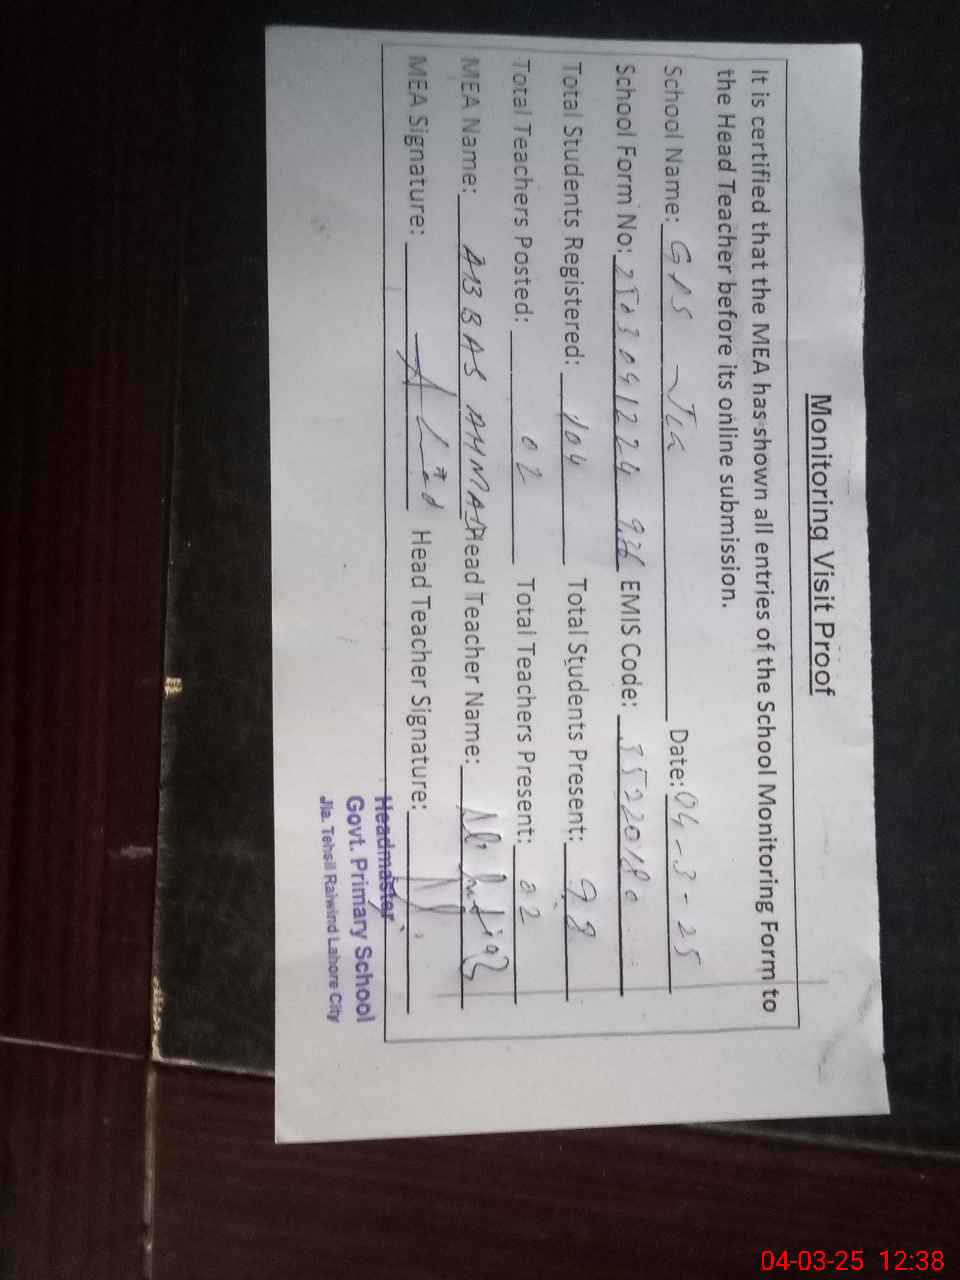 Monitoring Visit Proof
It is certified that the MEA has shown all entries of the School Monitoring Form to
the Head Teacher before its online submission.
School Name: GPS Jia Date: 04-3-25
School Form No: 2503041224 936 EMIS Code: 35220180
Total Students Registered: 104 Total Students Present: 98
Total Teachers Posted: 02 Total Teachers Present: 02
MEA Name: ABBAS AHMAD Head Teacher Name:
MEA Signature: Head Teacher Signature:
Headmaster
Govt. Primary School
Jia. Tehsil Raiwind Lahore City
04-03-25 12:38